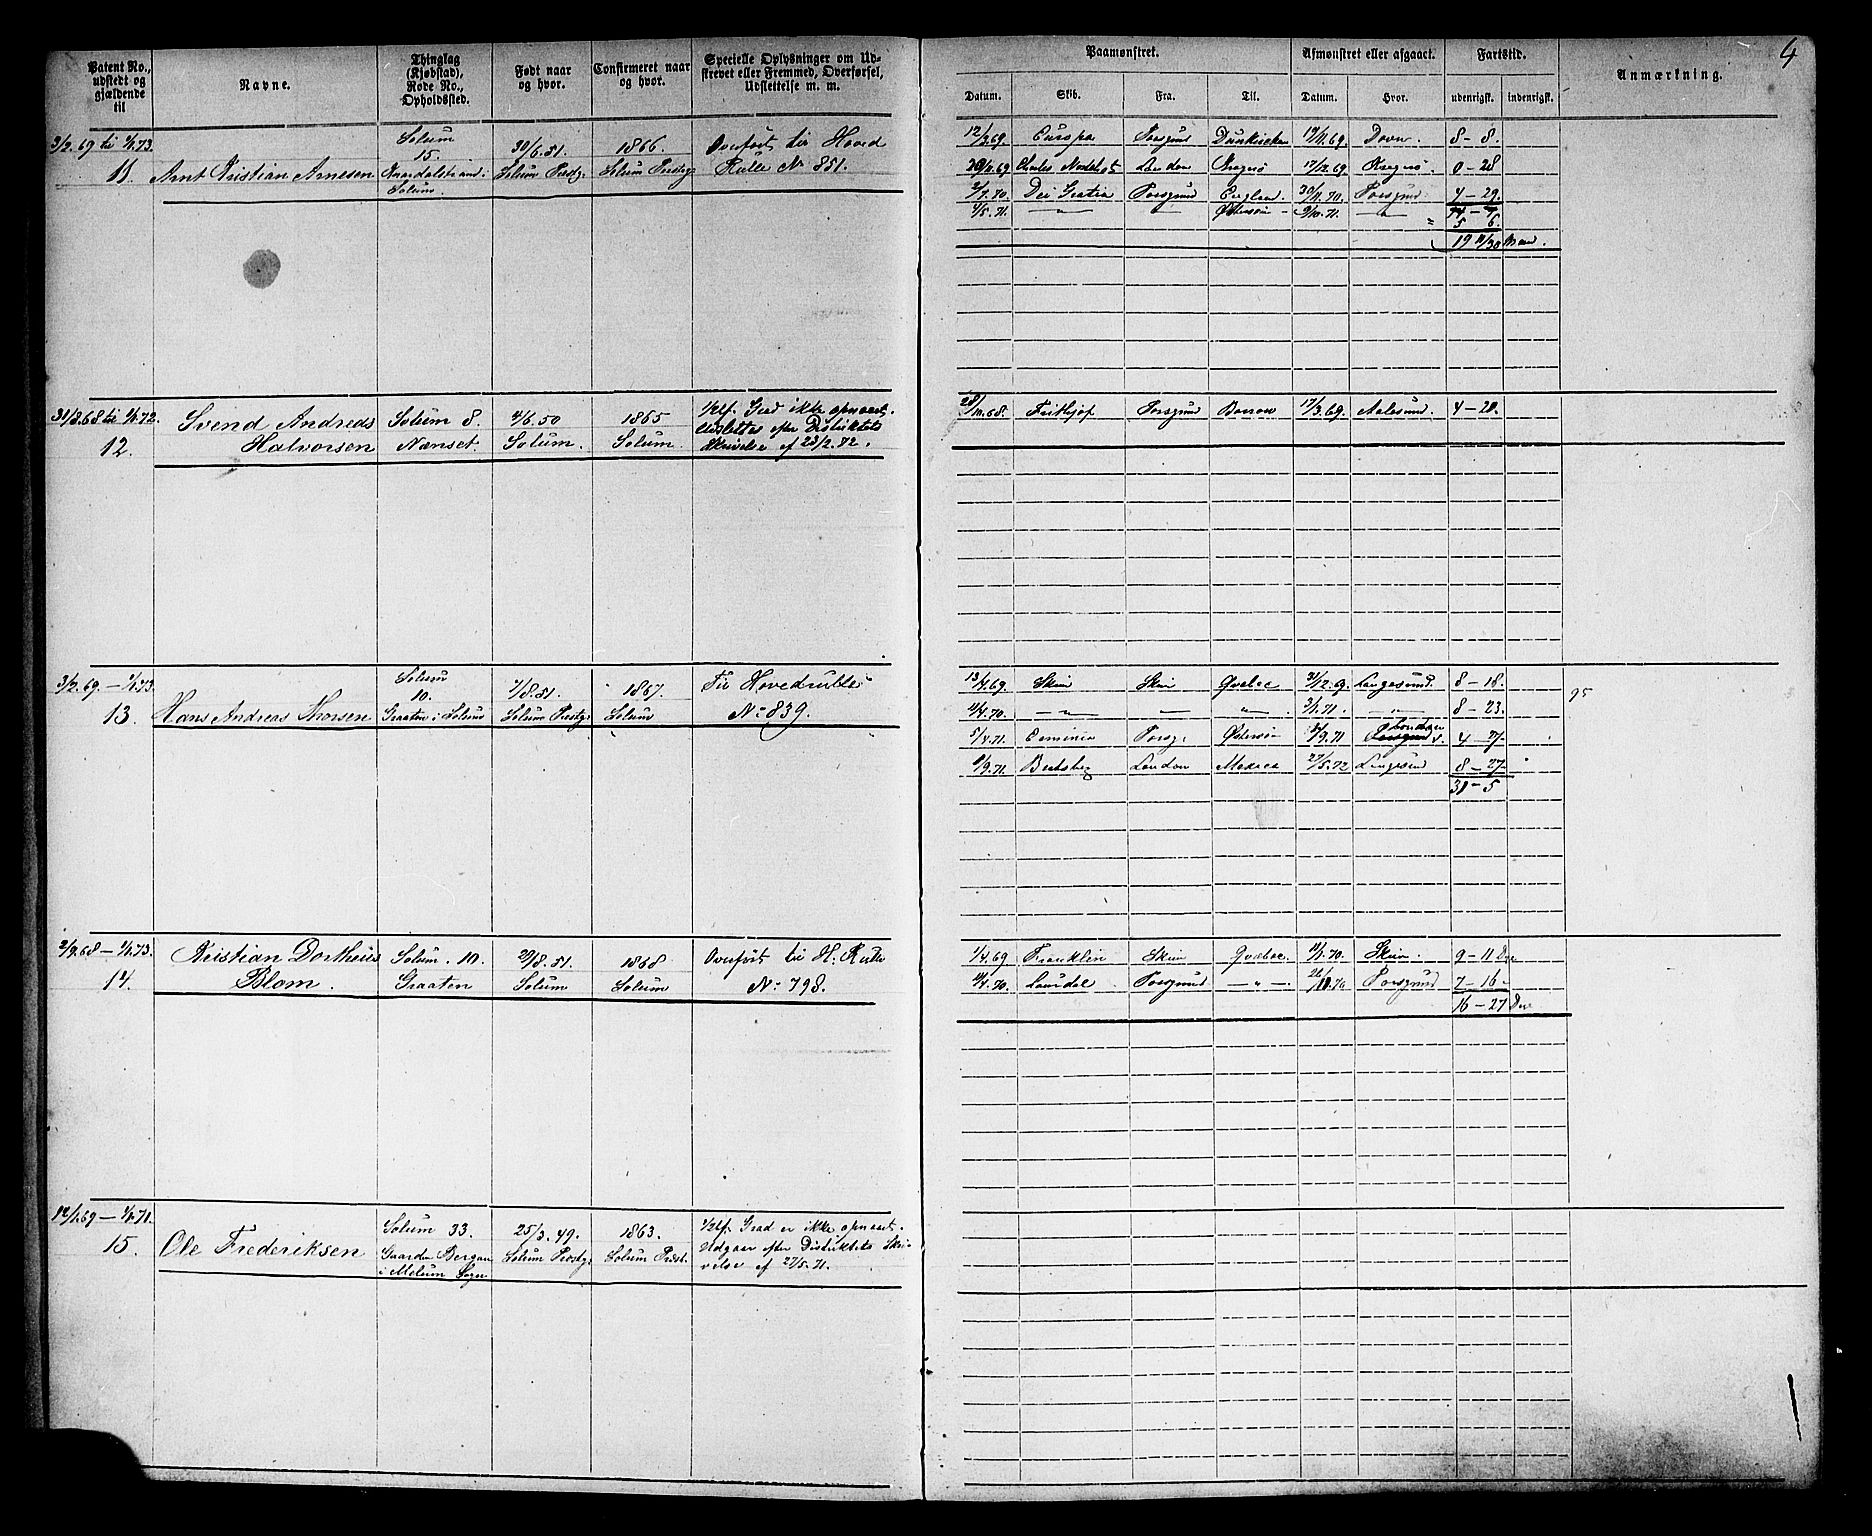 4
Patent No., udstedt og gjældende til
Navne.
Thinglag (Kjøbstad), Rode No., Opholdssted.
Født naar og hvor.
Confirmeret naar og hvor.
Specielle Oplysninger om Udskrevet eller Fremmed, Overførsel, Udslettelse m. m.
Paamønstret.
Afmønstret eller afgaaet.
Fartstid.
Anmærkning.
Datum. Skib. Fra. Til. Datum. Hvor. udenrigsk. indenrigsk.
3/2.69 til 1/1.73.
11. Arnt Kristian Arnesen
Solum
15.
Solum.
30/6.51.
Solum Prestg.
1866.
Solum Prestg
Overført til Hoved
Rulle No 851.
12/3.69 Europa Porsgrund Dunkirchen 19/11.69. Dover 8 - 8.
Charles London Kragerø 17/12.69 Kragerø. 0 - 28
2/7.70. Dei Gratia Porsgrund England. 30/11.70. Porsgrund 4 - 29.
4/5.71. — " — — " — Østersøen 9/10.71. — " —
5 6.
19 11/30 Mdr.
31/8.68 til 1/1.72.
12. Svend Andreas
Halvorsen
Solum 8.
Nanset.
4/6.50
Solum.
1865
Solum
1/2lf. Grad ikke opnaaet.
Udslettes efter Distriktets
Skrivelse af 23/2.72.
28/10.68. Frithjof Porsgrund 17/3.69. Aalesund. 4 - 20.
3/2.69. — 1/1.73.
13. Hans Andreas Thorsen
Solum
10.
Graaten i Solum
7/8.51.
Solum Prestg.
1867.
Solum
Til Hovedrulle
No 839.
13/4.69. Skien Qvebec 31/12.69. Langesund. 8 - 18. 95
11/4.70. — " — — " — 3/1.71. — " — 8 - 23.
London
5/4.71. Porsg. Østersøen 9.71 Porsgrund 4 - 7
9.71. London 27/5.72 Langesund 8 - 27
31 - 5
2/9.68 — 1/1.73.
14. Kristian Dortheus
Blom.
Solum. 10.
Graaten
29/8.51.
Solum
1868
Solum
Overført til H. Rulle
No 798.
1/4.69 Franklin Skien Qvebec. 1.70. Skien. 9 - 11 Dge
4.70. Laurdal Porsgrund — " — Porsgrund 7 - 16
16 - 27 Dge
12/1.69 — 1/1.71.
15. Ole Frederiksen
Solum 33.
Gaarden Bergan
i Melum Sogn
25/3.49.
Solum Prestg:
1863.
Solum Præst.
1/2lf. Grad er ikke opnaaet.
Udgaar efter Distriktets Skri-
velse af 27/5.71.